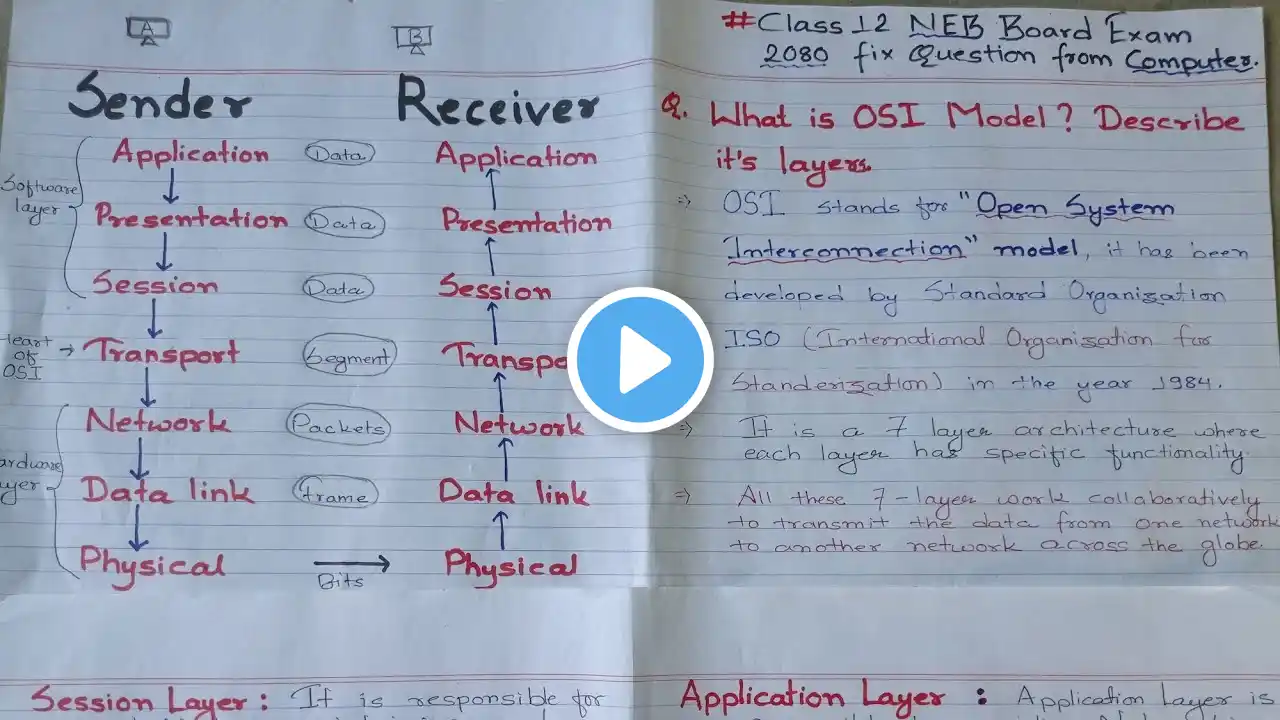 A
B
Sender
Receiver
Application
Data
Application
Software
layer
Presentation
Data
Presentation
Session
Data
Session
Heart
of
OSI
Transport
Segment
Transpo
Network
Packets
Network
ardware
yer
Data link
frame
Data link
Physical
Bits
Physical
Session Layer : It is responsible for
#Class 12 NEB Board Exam
2080 fix Question from Computer.
Q. What is OSI Model? Describe
it's layers.
⇒ OSI stands for "Open System
Interconnection" model, it has been
developed by Standard Organization
ISO (International Organisation for
Standerization) in the year 1984.
⇒ It is a 7 layer architecture where
each layer has specific functionality.
⇒ All these 7-layer work collaboratively
to transmit the data from one network
to another network across the globe.
Application Layer : Application Layer is